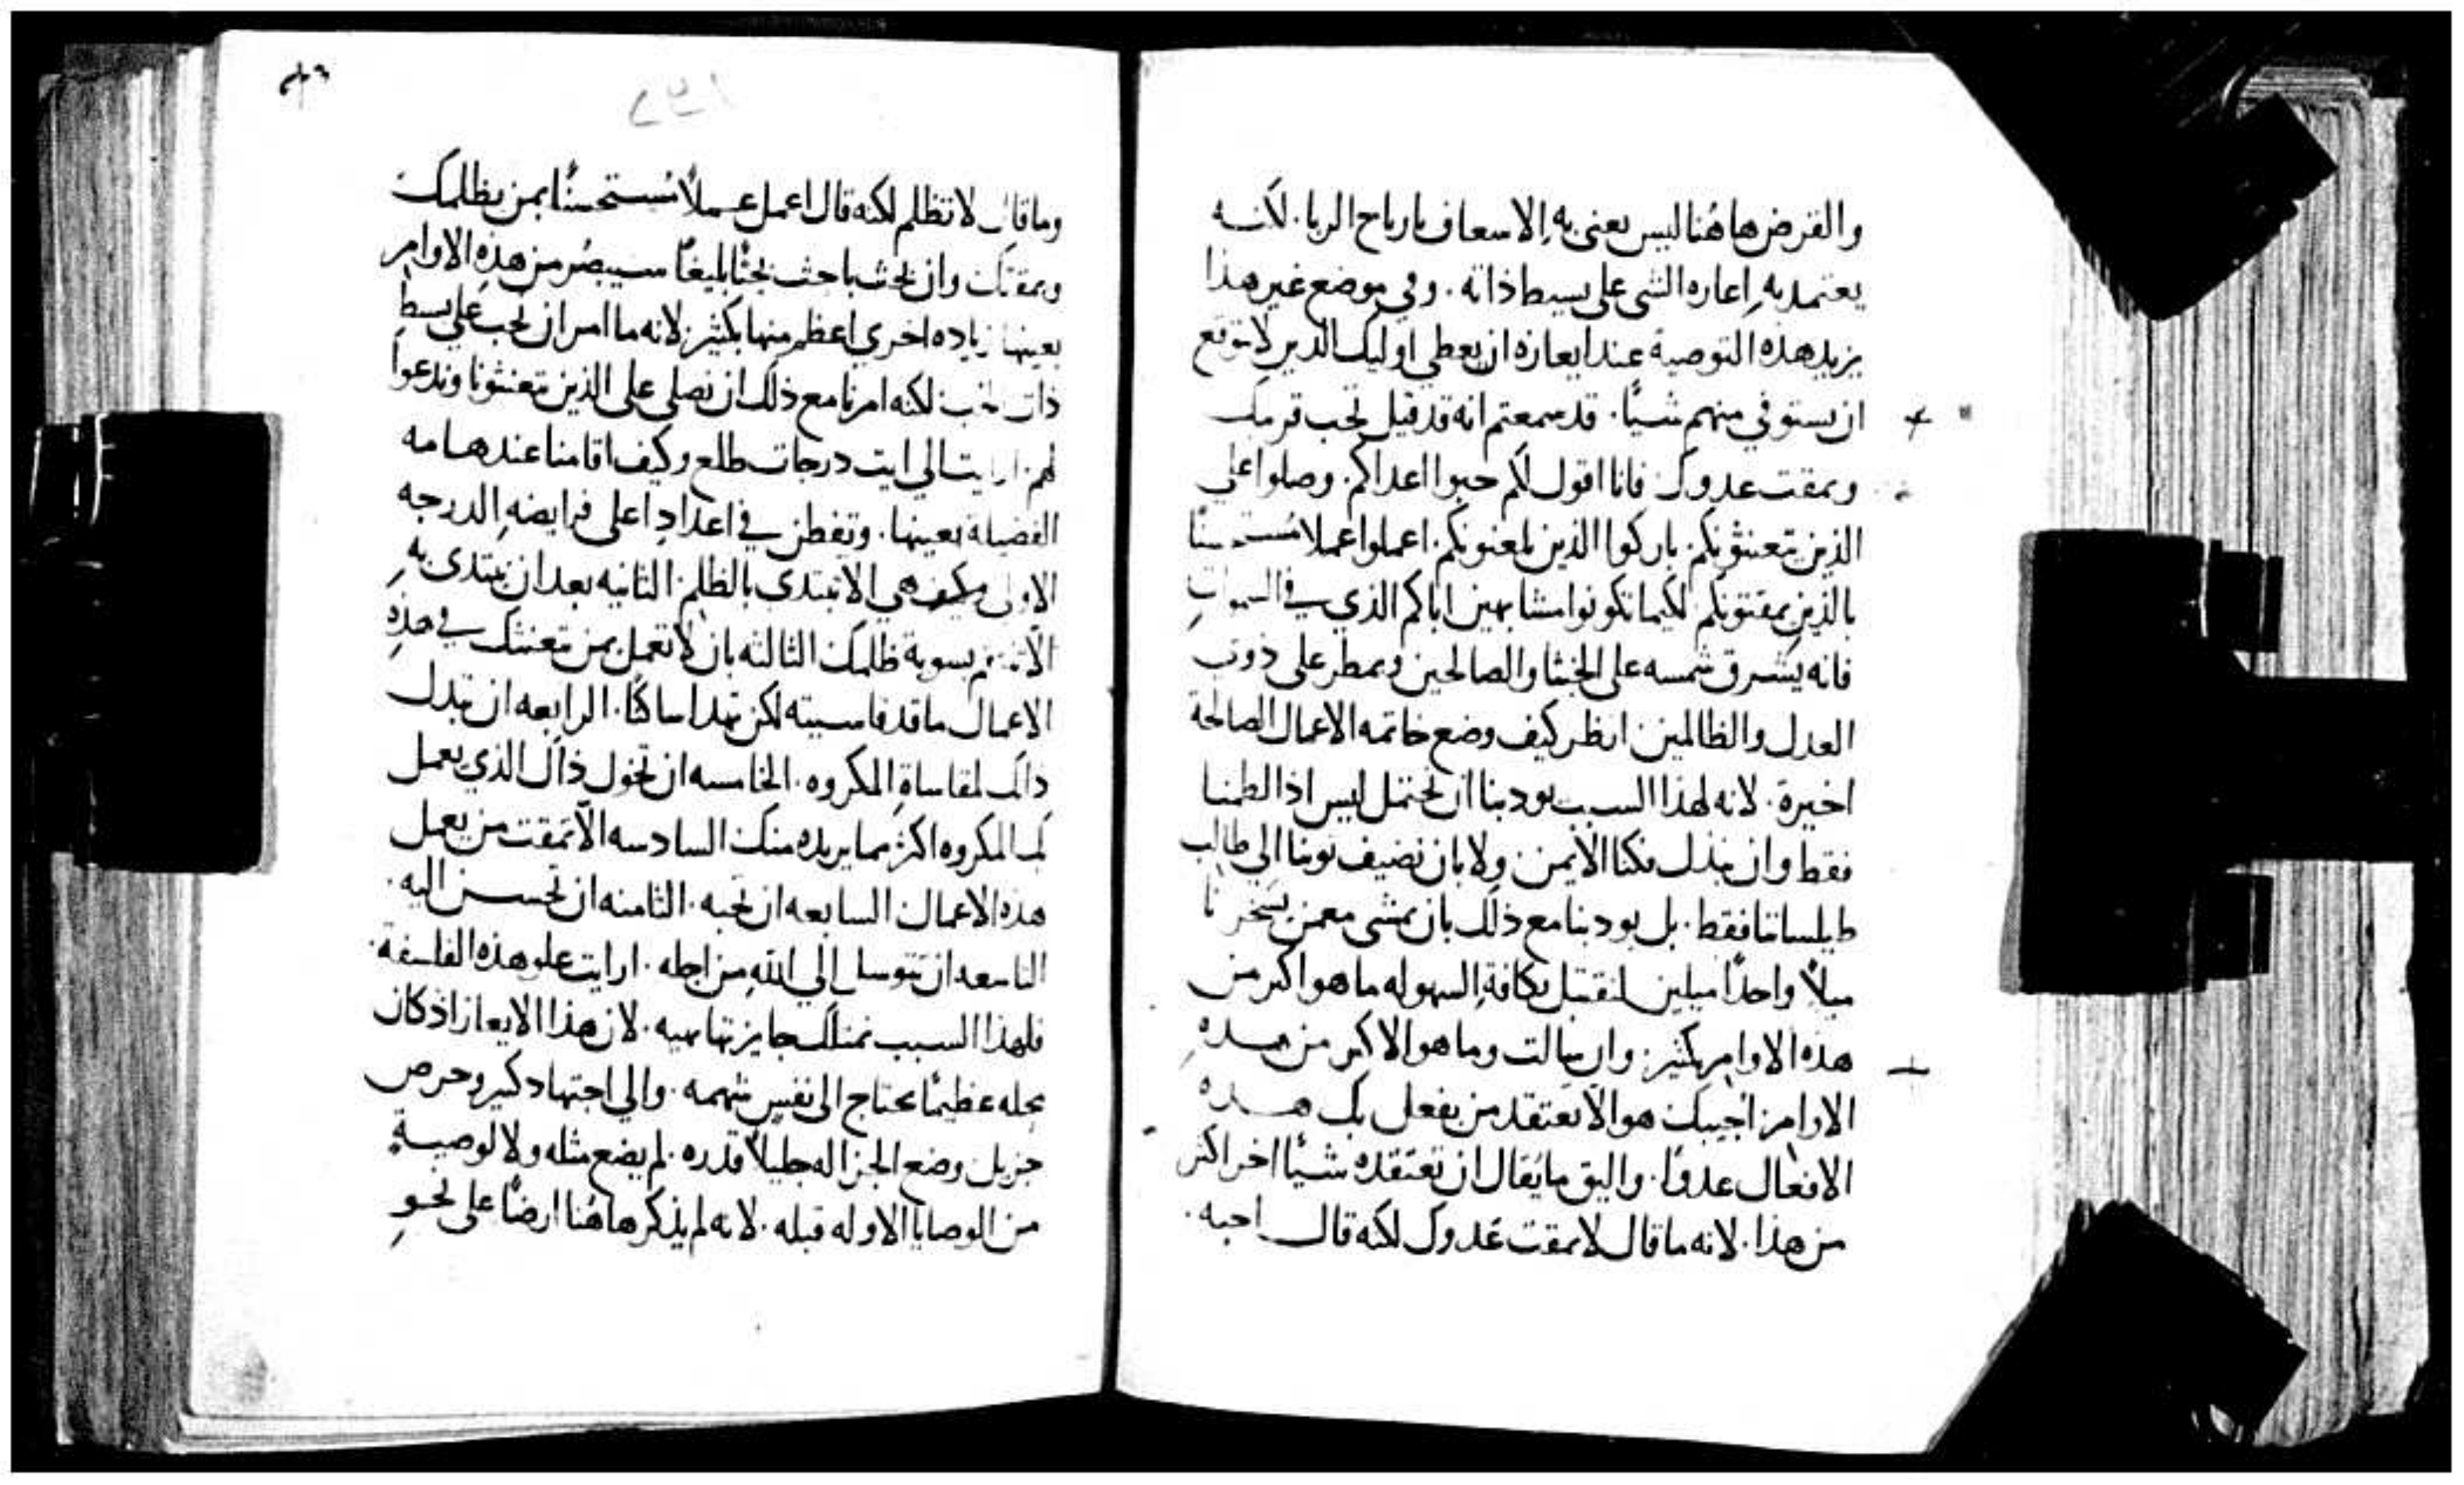 والقرض هاهُنا ليس يعنى به الاسعاف بارباح الربا. لانه
يعتمد به اعاره الشى على بسيط ذاته. وفي موضع غير هذا
يزيد هذه التوصية عند ايعازه ان يعطي اوليك الذين لا نتوقع
ان نستوفي منهم شيًا. قد سمعتم انه قد قيل تحب قريبك
وتمقت عدوك فانا اقول لكم حبوا اعداكم. وصلوا على
الذين يتعنثونكم. باركوا الذين يلعنونكم. اعملوا عملا مُستحسنًا
بالذين يمقتونكم لكيما تكونوا مشابهين اباكم الذي في السموات
فانه يشرق شمسه على الخبثا والصالحين ويمطر على ذوي
العدل والظالمين. انظر كيف وضع خاتمه الاعمال الصالحة
اخيرة. لانه لهذا السبب يودبنا ان نحتمل ليس اذا لطمنا
فقط وان نبذل فكنا الايمن. ولا بان نضيف ثوبنا الي طالب
طيلساننا فقط. بل يودبنا مع ذلك بان نمشي مع من يسخرنا
ميلاً واحدًا ميلين لنقتبل بكافة السهوله ما هو اكبر من
هذه الاوامر بكثير. وان سالت وما هو الاكبر من هذه
الاوامر اجيبك هو الا تعتقد من يفعل بك هذه
الافعال عدوًا. واليق ما يُقال ان تعتقده شيًا اخر اكثر
من هذا. لانه ما قال لا تمقت عدوك لكنه قال احبه.
وما قال لا تظلم لكنه قال اعمل عملاً مُستحسنًا بمن يظلمك
ويمقتك وان بحث باحث بحثًا بليغًا سيبصُر من هذه الاوامر
بعينها زياده اخري اعظم منها بكثير لانه ما امر ان نحب على بسط
ذات الحب لكنه امرنا مع ذلك ان نصلي على الذين يتعنثونا وندعوا
لهم. ارايت الي ايت درجات طلع وكيف اقامنا عند هامه
الفضيلة بعينها. وتفطن في اعدادها على فرايضه الدرجه
الاولى هي الا نبتدى بالظلم الثانيه بعد ان يبتدى به
الا تنتقم بسوية ظلمك الثالثه بان لا تعمل بمن تعنثك في هذه
الاعمال ما قد قاسيته لكن تهدا ساكنًا. الرابعه ان تبذل
ذاتك لمقاساة المكروه. الخامسه ان تخول ذاك الذي يعمل
بك المكروه اكثر مما يريده منك السادسه الا تمقت من يعمل
هذه الاعمال السابعه ان تحبه. الثامنه ان تحسن اليه.
التاسعه ان تتوسل الي الله من اجله. ارايت علو هذه الفلسفة.
فلهذا السبب تمتلك جايزتها بهيه. لان هذا الايعاز اذ كان
محله عظيمًا يحتاج الى نفس شهمه. والي اجتهاد كبير وحرص
جزيل. وضع الجزا له جليلاً قدره. لم يضع مثله ولا لوصية
من الوصايا الاوله قبله. لانه لم يذكر هاهُنا ارضًا على نحو